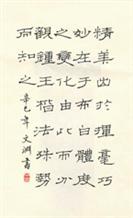 精美出於揮毫巧
妙在於布白體度
之變化由此而分
觀鍾王楷法殊勢
而知之 辛巳年文淵書